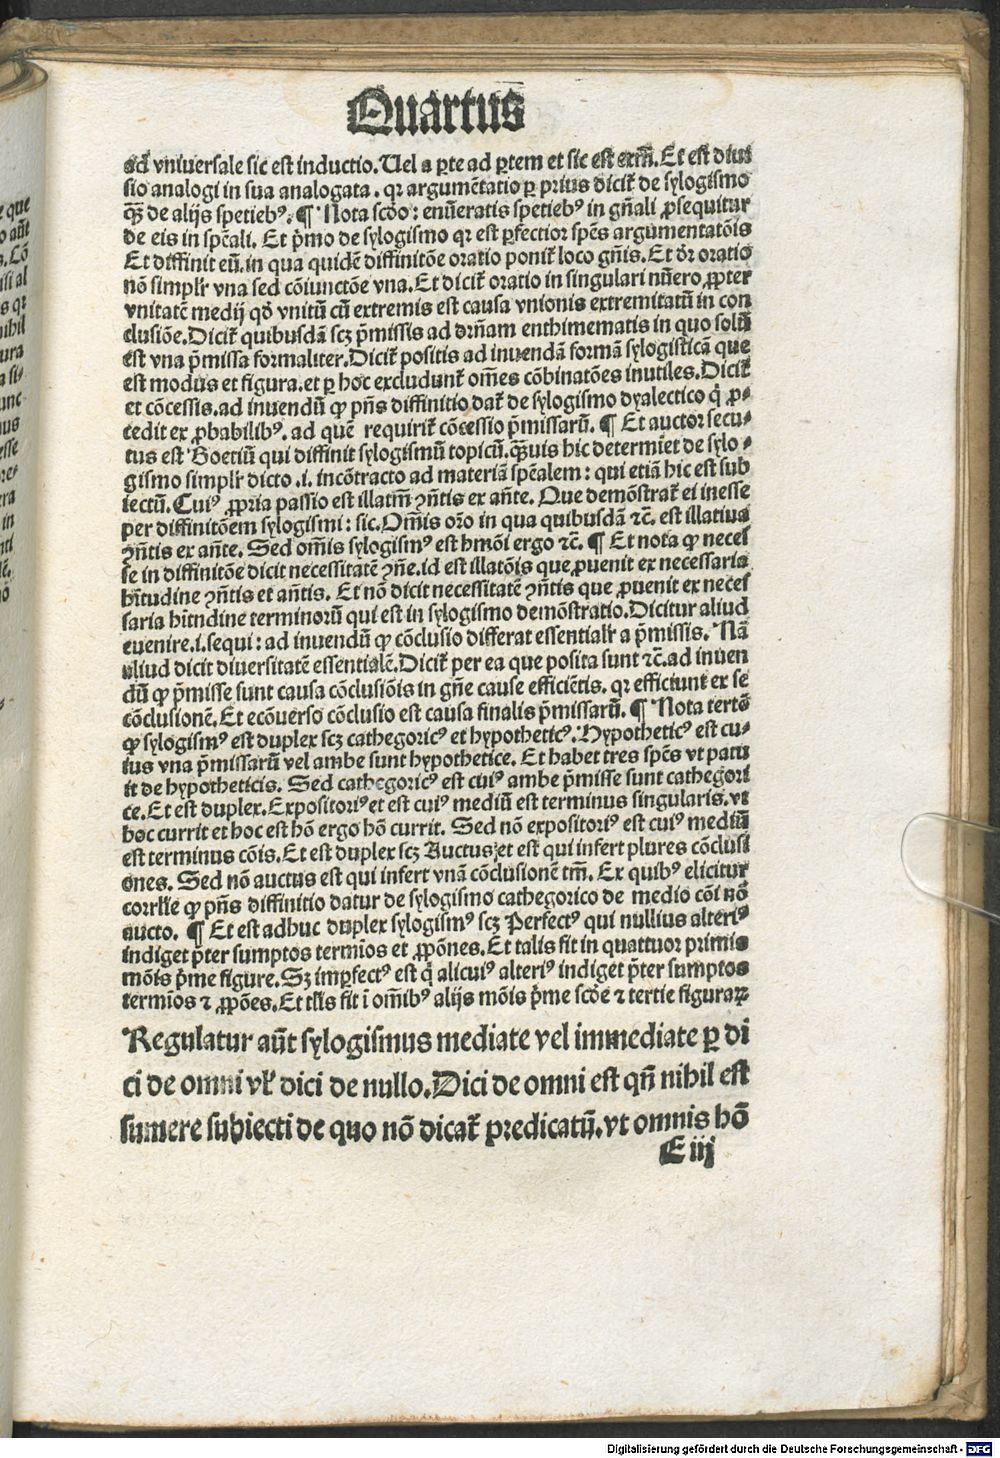 Quartus
ad vniuersale sic est inductio. Uel a ꝑte ad ꝑtem et sic est exm̄. Et est diui
sio analogi in sua analogata. qꝛ argumētatio ꝑ prius dicit᷑ de sylogismo
qȝ̄ de alijs spetiebꝰ. ¶ Nota scďo: enūeratis spetiebꝰ in gn̄ali ꝓsequitur
de eis in spēali. Et p̄mo de sylogismo qꝛ est ꝑfectior spēs argumentatōis
Et diffinit eū. in qua quidē diffinitōe oratio ponit᷑ loco gn̄is. Et dr̄ oratio
nō simplr̄ vna sed cōiunctōe vna. Et dicit᷑ oratio in singulari nūero ꝓpter
vnitatē medij qď vnitū cū extremis est causa vnionis extremitatū in con
clusiōe. Dicit᷑ quibusdā scꝫ p̄missis ad drn̄am enthimematis in quo solū
est vna p̄missa formaliter. Dicit᷑ positis ad inuendā formā sylogisticā que
est modus et figura. et ꝑ hoc excludunt᷑ om̄es cōbinatōes inutiles. Dicit᷑
et cōcessis. ad inuendū ꝙ pn̄s diffinitio dat᷑ de sylogismo dyalectico q̇ ꝓ-
cedit ex ꝓbabilibꝰ. ad quē requirit᷑ cōcessio p̄missarū. ¶ Et auctor secu-
tus est Boetiū qui diffinit sylogismū topicū. qȝ̄uis hic determīet de sylo-
gismo simplr̄ dicto .i. incōtracto ad materiā spēalem: qui etiā hic est sub
iectū. Cuiꝰ ꝓpria passio est illatīm ꝯn̄tis ex an̄te. Que demōstrat᷑ ei inesse
per diffinitōem sylogismi: sic. Om̄is or̄o in qua quibusdā ⁊c̄. est illatiua
ꝯn̄tis ex an̄te. Sed om̄is sylogismꝰ est hmōi ergo ⁊c̄. ¶ Et nota ꝙ neces
se in diffinitōe dicit necessitatē ꝯn̄e. id est illatōis que ꝓuenit ex necessaria
hītudine ꝯn̄tis et an̄tis. Et nō dicit necessitatē ꝯn̄tis que ꝓuenit ex neces
saria hītudine terminorū qui est in sylogismo demōstratio. Dicitur aliud
euenire .i. sequi: ad inuendū ꝙ cōclusio differat essentialr̄ a p̄missis. Nā
aliud dicit diuersitatē essentialē. Dicit᷑ per ea que posita sunt ⁊c̄. ad inuen
dū ꝙ p̄misse sunt causa cōclusiōis in gn̄e cause efficiētis. qꝛ efficiunt ex se
cōclusionē. Et ecōuerso cōclusio est causa finalis p̄missarū. ¶ Nota tertō
ꝙ sylogismꝰ est duplex scꝫ cathegoricꝰ et hypotheticꝰ. Hypotheticꝰ est cu-
ius vna p̄missarū vel ambe sunt hypothetice. Et habet tres spēs vt patu
it de hypotheticis. Sed cathegoricꝰ est cuiꝰ ambe p̄misse sunt cathegori
ce. Et est duplex. Expositoriꝰ et est cuiꝰ mediū est terminus singularis. vt
hoc currit et hoc est hō ergo hō currit. Sed nō expositoriꝰ est cuiꝰ mediū
est terminus cōis. Et est duplex scꝫ Auctus et est qui infert plures cōclusi
ones. Sed nō auctus est qui infert vnā cōclusionē tm̄. Ex quibꝰ elicitur
corrlīe ꝙ pn̄s diffinitio datur de sylogismo cathegorico de medio cōi nō
aucto. ¶ Et est adhuc duplex sylogismꝰ scꝫ Perfectꝰ qui nullius alteriꝰ
indiget p̄ter sumptos termīos et ꝓpōnes. Et talis fit in quattuor primis
mōis p̄me figure. Sꝫ imꝑfectꝰ est q̇ alicuiꝰ alteriꝰ indiget p̄ter sumptos
termīos ⁊ ꝓpōes. Et tl̄is fit ī om̄ibꝰ alijs mōis p̄me scďe ⁊ tertie figuraꝝ
Regulatur aūt sylogismus mediate vel immediate ꝑ di
ci de omni vl̓ dici de nullo. Dici de omni est qn̄ nihil est
sumere subiecti de quo nō dicat᷑ predicatū. vt omnis hō
E iij
Digitalisierung gefördert durch die Deutsche Forschungsgemeinschaft - DFG